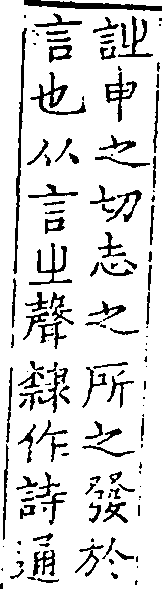 訨申之切志之所之發於
言也从言㞢聲隸作詩通